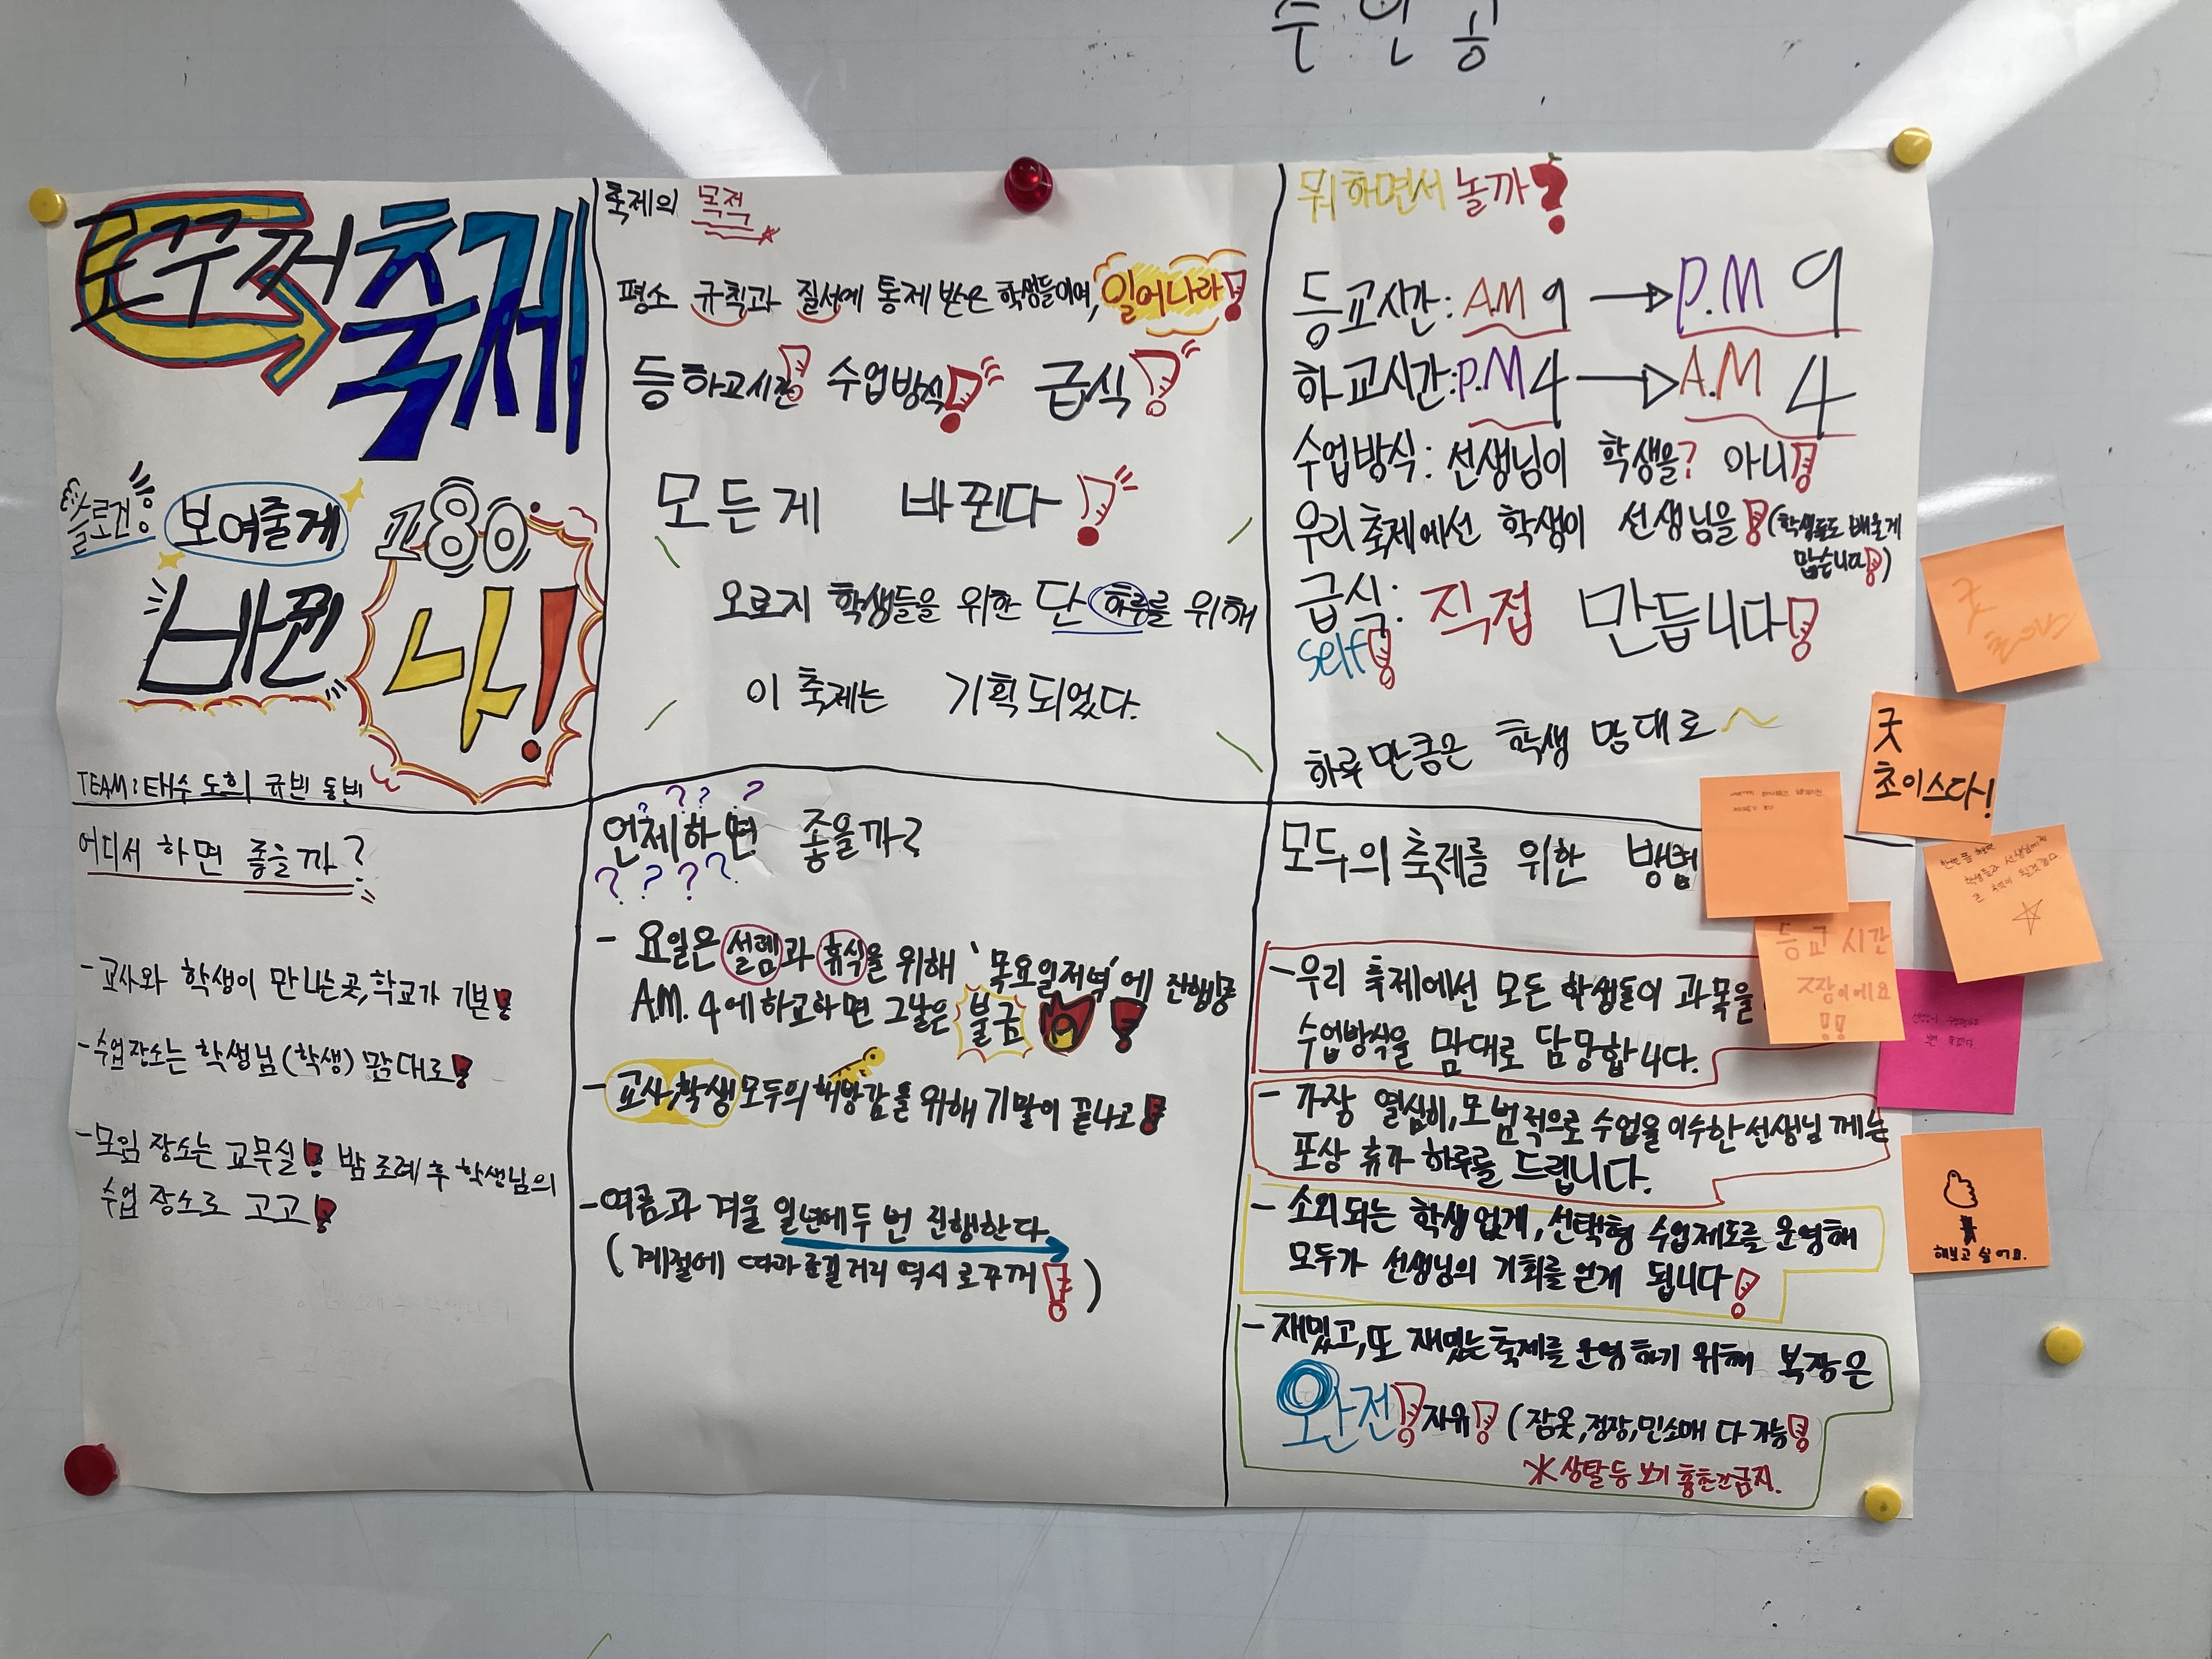 로꾸꺼 축제
슬로건! 보여줄게 180
바뀐 나!
TEAM: 태수 도희 규빈 동빈
축제의 목적
평소 규칙과 질서에 통제 받은 학생들이여, 일어나라!
등하교시간! 수업방식! 급식!
모든게 바뀐다!
오로지 학생들을 위한 단 하루를 위해
이 축제는 기획되었다.
뭐하면서 놀까?
등교시간: A.M 9 → P.M 9
하교시간: P.M 4 → A.M 4
수업방식: 선생님이 학생을? 아니!
우리 축제에선 학생이 선생님을! (학생들도 배울게
많습니다!)
급식: 직접 만듭니다!
self!
하루 만큼은 학생 맘대로~
어디서 하면 좋을까?
- 교사와 학생이 만나는 곳, 학교가 기본!
- 수업 장소는 학생님(학생) 맘대로!
- 모임 장소는 교무실! 밤 조례 후 학생님의
수업 장소로 고고!
? ? ? ?
언제하면 좋을까?
? ? ? ?
- 요일은 설렘과 휴식을 위해 '목요일저녁'에 진행!
A.M. 4에 하교하면 그날은 불금!
- 교사, 학생 모두의 해방감을 위해 기말이 끝나고!
- 여름과 겨울 일년에 두 번 진행한다.
(계절에 따라 즐길거리 역시 로꾸꺼!)
모두의 축제를 위한 방법
- 우리 축제에선 모든 학생들이 과목을
수업방식을 맘대로 담당합니다.
- 가장 열심히, 모범적으로 수업을 이수한 선생님 께는
포상 휴가 하루를 드립니다.
- 소외 되는 학생 없게, 선택형 수업제도를 운영해
모두가 선생님의 기회를 얻게 됩니다!
- 재밌고, 또 재밌는 축제를 운영하기 위해 복장은
완전! 자유! (잠옷, 정장, 민소매 다 가능!
※ 상탈 등 보기 흉측한 금지.
굿
초이스
굿
초이스다!
등교 시간
짱이에요
!!
해보고 싶어요.